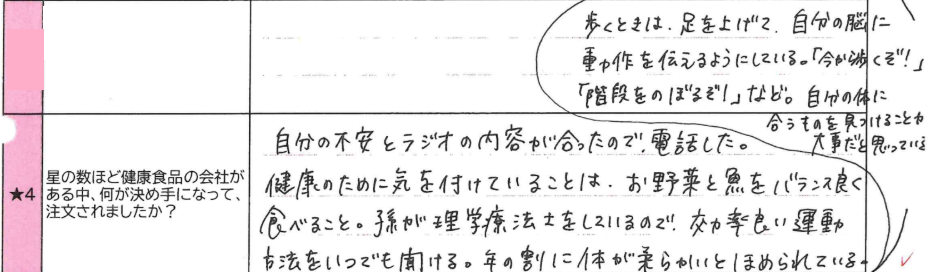 ★4
星の数ほど健康食品の会社が
ある中、何が決め手になって、
注文されましたか？
自分の不安とラジオの内容が合ったので、電話した。
健康のために気を付けていることは、お野菜と魚をバランス良く
食べること。孫が理学療法士をしているので、効率良い運動
方法をいつでも聞ける。年の割に体が柔らかいとほめられている。
歩くときは、足を上げて、自分の脳に
動作を伝えるようにしている。「今から歩くぞ！」
「階段をのぼるぞ！」など。自分の体に
合うものを見つけることが
大事だと思っている